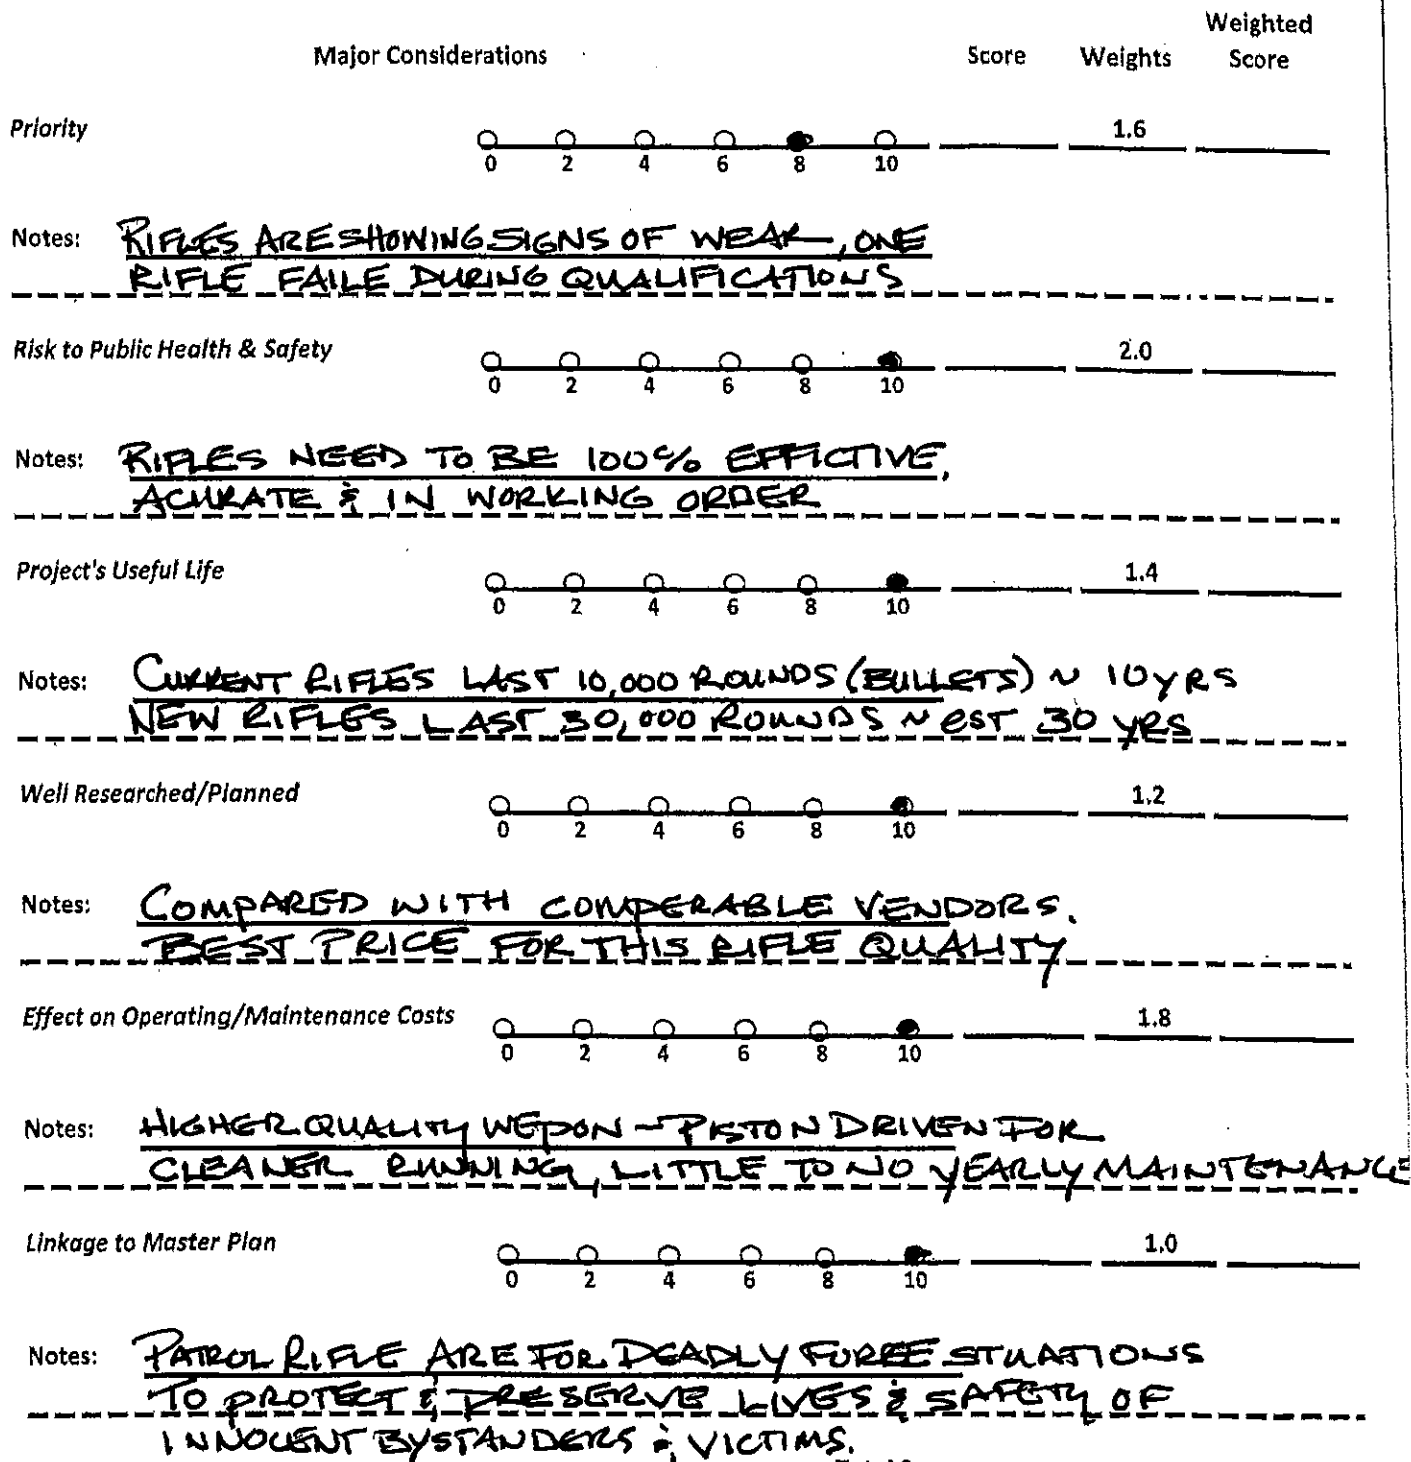 Weighted
Major Considerations Score Weights Score
Priority 1.6
0 2 4 6 8 10
Notes: RIFLES ARE SHOWING SIGNS OF WEAR, ONE
RIFLE FAILE DURING QUALIFICATIONS
Risk to Public Health & Safety 2.0
0 2 4 6 8 10
Notes: RIFLES NEED TO BE 100% EFFICTIVE,
ACURATE & IN WORKING ORDER
Project's Useful Life 1.4
0 2 4 6 8 10
Notes: CURRENT RIFLES LAST 10,000 ROUNDS (BULLETS) ~ 10 YRS
NEW RIFLES LAST 30,000 ROUNDS ~ EST 30 YRS
Well Researched/Planned 1.2
0 2 4 6 8 10
Notes: COMPARED WITH COMPERABLE VENDORS.
BEST PRICE FOR THIS RIFLE QUALITY
Effect on Operating/Maintenance Costs 1.8
0 2 4 6 8 10
Notes: HIGHER QUALITY WEPON ~ PISTON DRIVEN FOR
CLEANER RUNNING, LITTLE TO NO YEARLY MAINTENANCE
Linkage to Master Plan 1.0
0 2 4 6 8 10
Notes: PATROL RIFLE ARE FOR DEADLY FORCE STUATIONS
TO PROTECT & PRESERVE LIVES & SAFETY OF
INNOCENT BYSTANDERS & VICTIMS.